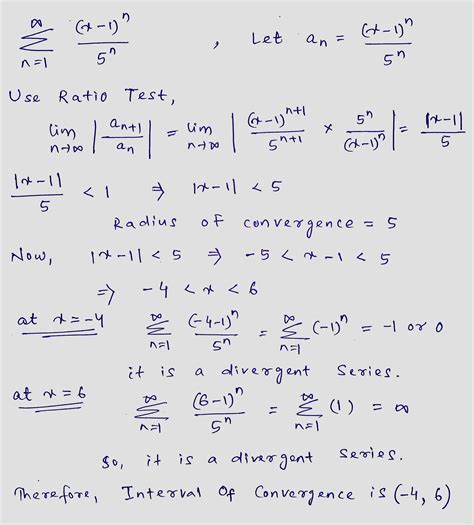 ∞
Σ (x-1)ⁿ / 5ⁿ , Let aₙ = (x-1)ⁿ / 5ⁿ
n=1
Use Ratio Test,
lim n→∞ |aₙ₊₁ / aₙ| = lim n→∞ |(x-1)ⁿ⁺¹ / 5ⁿ⁺¹ × 5ⁿ / (x-1)ⁿ| = |x-1| / 5
|x-1| / 5 < 1 ⇒ |x-1| < 5
Radius of convergence = 5
Now, |x-1| < 5 ⇒ -5 < x-1 < 5
⇒ -4 < x < 6
at x=-4 ∞ Σ n=1 (-4-1)ⁿ / 5ⁿ = ∞ Σ n=1 (-1)ⁿ = -1 or 0
it is a divergent series.
at x=6 ∞ Σ n=1 (6-1)ⁿ / 5ⁿ = ∞ Σ n=1 (1) = ∞
So, it is a divergent series.
Therefore, Interval Of Convergence is (-4, 6)